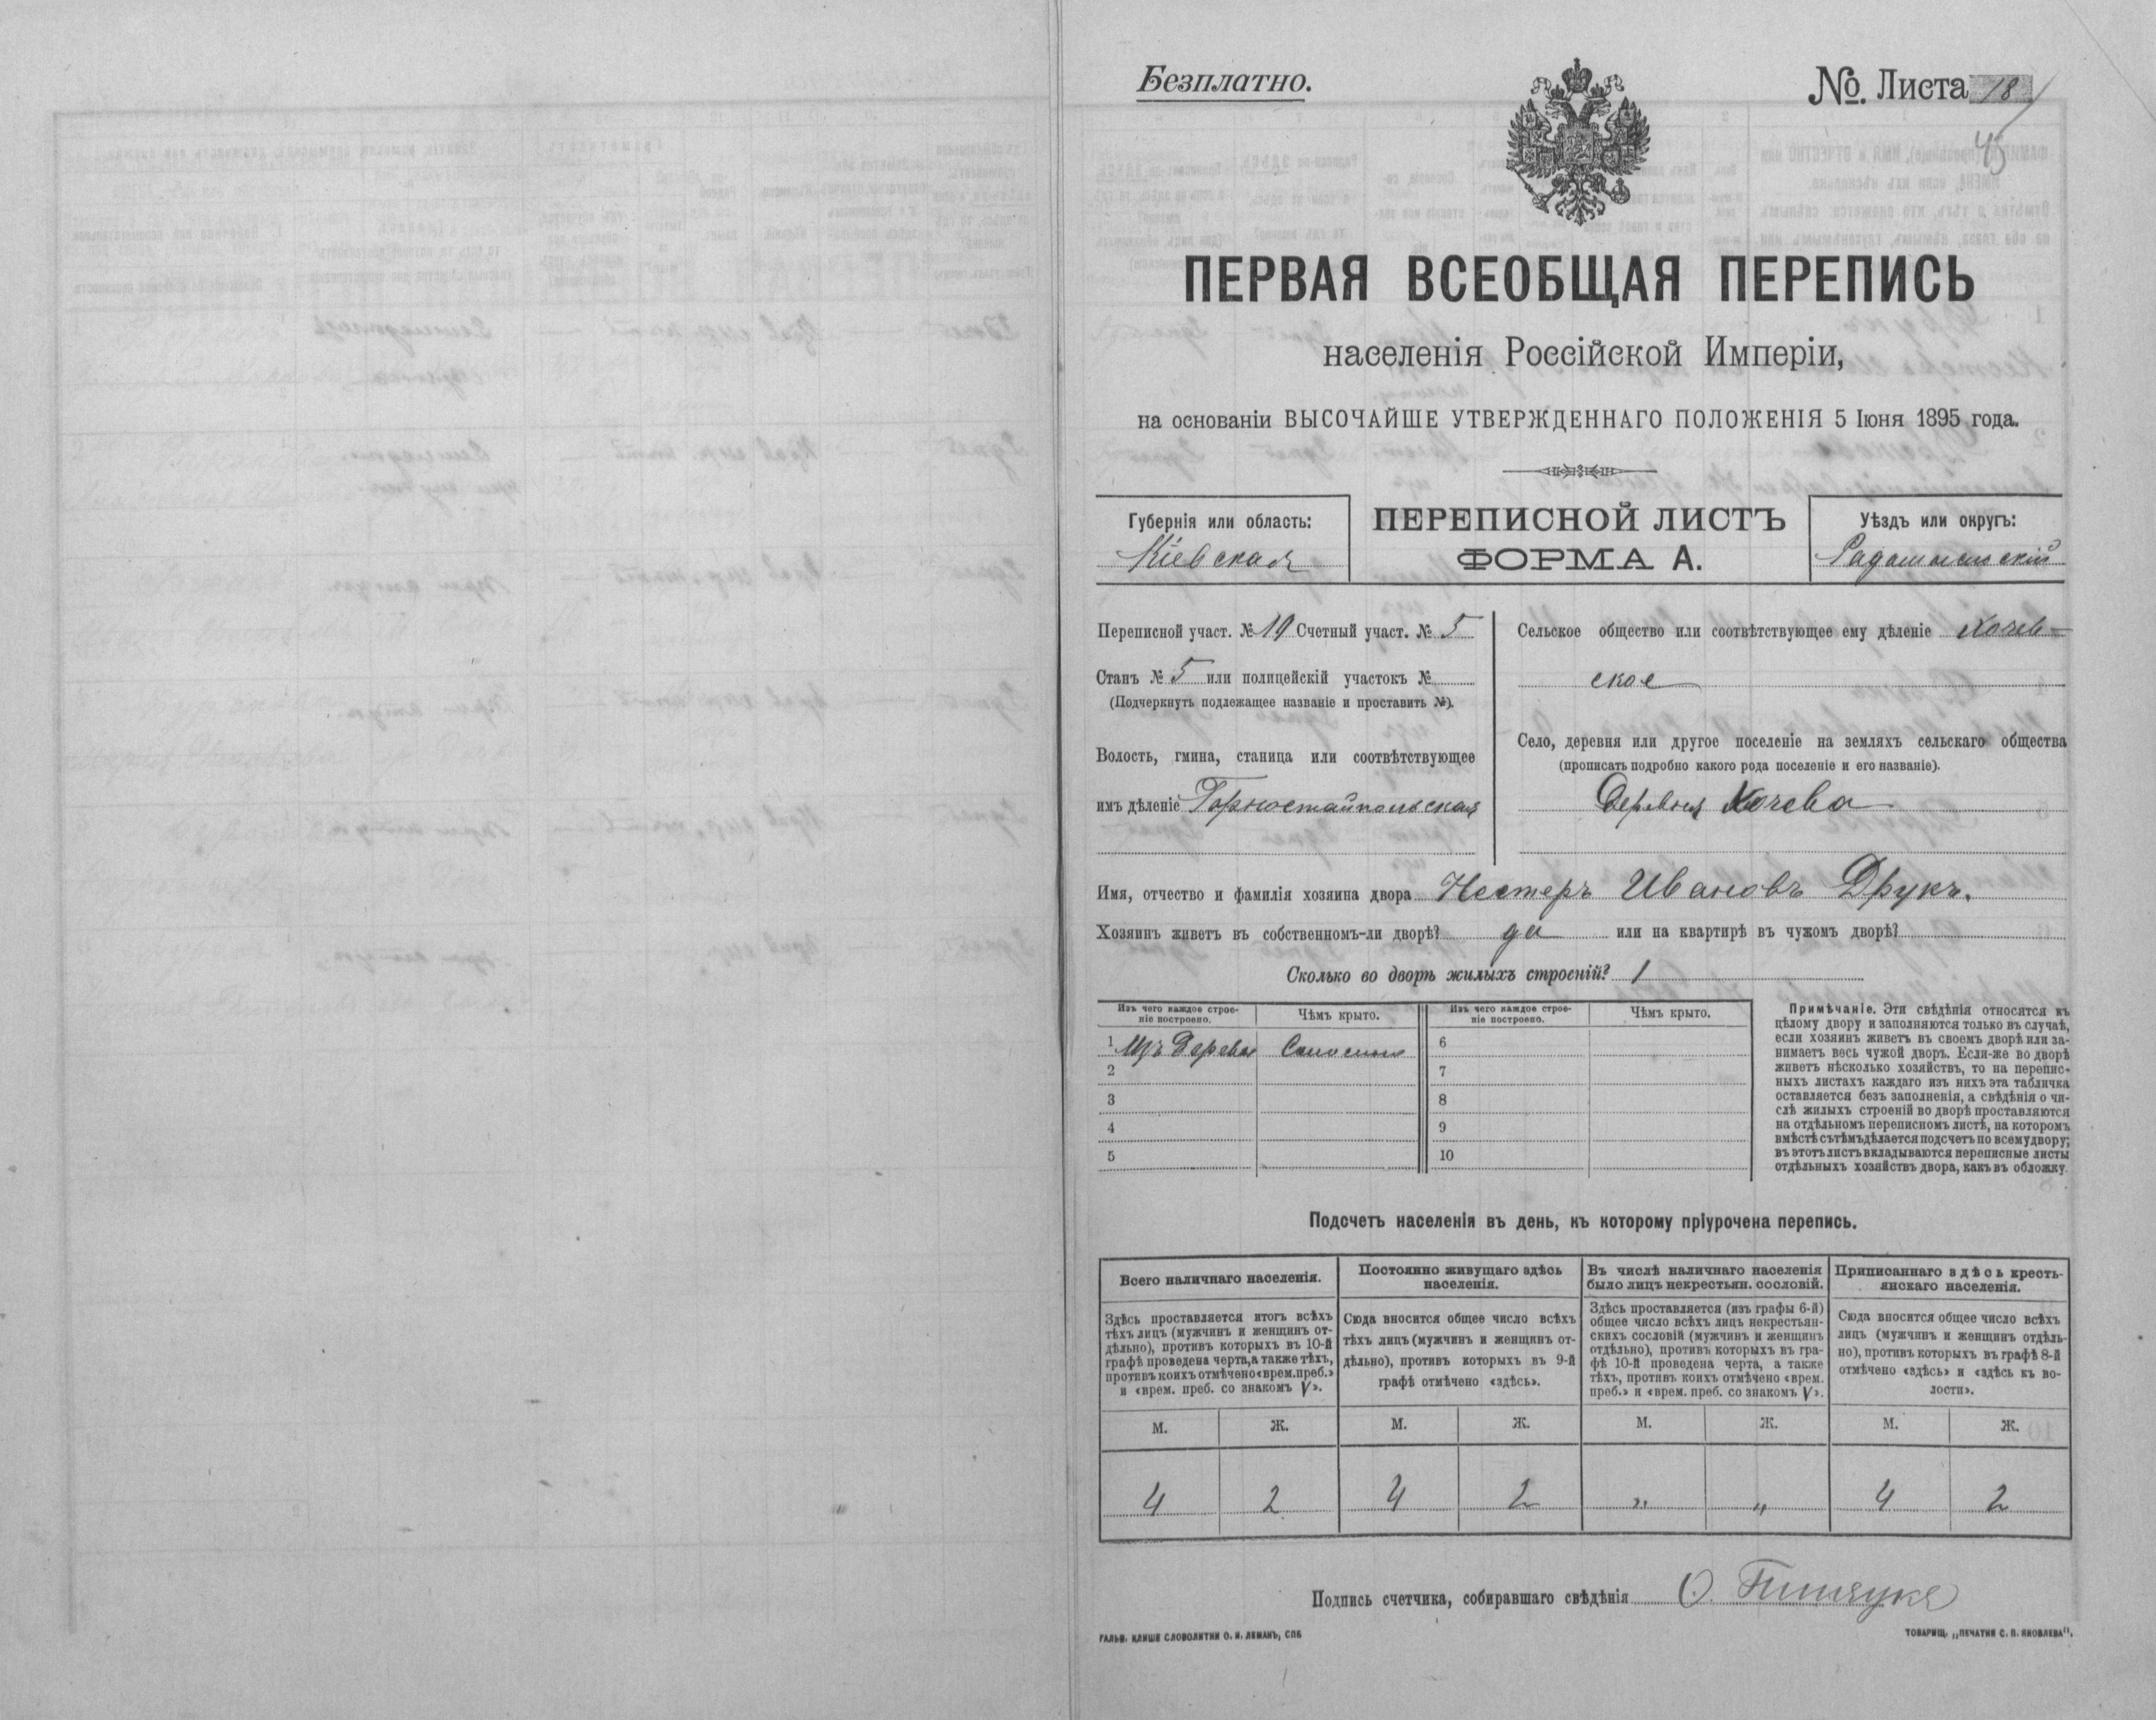 Безплатно.
№. Листа 18
45
ПЕРВАЯ ВСЕОБЩАЯ ПЕРЕПИСЬ
населенія Россійской Имперіи,
на основаніи ВЫСОЧАЙШЕ УТВЕРЖДЕННАГО ПОЛОЖЕНІЯ 5 Іюня 1895 года.
Губернія или область:
Кіевская
ПЕРЕПИСНОЙ ЛИСТЪ
ФОРМА А.
Уѣздъ или округъ:
Радомысльскій
Переписной участ. № 19 Счетный участ. № 5
Станъ № 5 или полицейскій участокъ №
(Подчеркнуть подлежащее названіе и проставить №).
Волость, гмина, станица или соотвѣтствующее
имъ дѣленіе Горностайпольская
Сельское общество или соотвѣтствующее ему дѣленіе Хочев-
ское
Село, деревня или другое поселеніе на земляхъ сельскаго общества
(прописать подробно какого рода поселеніе и его названіе).
Деревня Хочева
Имя, отчество и фамилія хозяина двора Нестеръ Ивановъ Друкъ.
Хозяинъ живетъ въ собственномъ-ли дворѣ? да или на квартирѣ въ чужомъ дворѣ?
Сколько во дворѣ жилыхъ строеній? 1
Изъ чего каждое строе-
ніе построено.
Чѣмъ крыто.
Изъ чего каждое строе-
ніе построено.
Чѣмъ крыто.
1 Изъ дерева Соломою 6
2 7
3 8
4 9
5 10
Примѣчаніе. Эти свѣдѣнія относятся къ
цѣлому двору и заполняются только въ случаѣ,
если хозяинъ живетъ въ своемъ дворѣ или за-
нимаетъ весь чужой дворъ. Если-же во дворѣ
живетъ нѣсколько хозяйствъ, то на перепис-
ныхъ листахъ каждаго изъ нихъ эта табличка
оставляется безъ заполненія, а свѣдѣнія о чи-
слѣ жилыхъ строеній во дворѣ проставляются
на отдѣльномъ переписномъ листѣ, на которомъ
вмѣстѣ съ тѣмъ дѣлается подсчетъ по всему двору;
въ этотъ листъ вкладываются переписные листы
отдѣльныхъ хозяйствъ двора, какъ въ обложку.
Подсчетъ населенія въ день, къ которому пріурочена перепись.
Всего наличнаго населенія.
Здѣсь проставляется итогъ всѣхъ
тѣхъ лицъ (мужчинъ и женщинъ от-
дѣльно), противъ которыхъ въ 10-й
графѣ проведена черта, а также тѣхъ,
противъ коихъ отмѣчено «врем. преб.»
и «врем. преб. со знакомъ V».
Постоянно живущаго здѣсь
населенія.
Сюда вносится общее число всѣхъ
тѣхъ лицъ (мужчинъ и женщинъ от-
дѣльно), противъ которыхъ въ 9-й
графѣ отмѣчено «здѣсь».
Въ числѣ наличнаго населенія
было лицъ некрестьян. сословій.
Здѣсь проставляется (изъ графы 6-й)
общее число всѣхъ лицъ некрестьян-
скихъ сословій (мужчинъ и женщинъ
отдѣльно), противъ которыхъ въ гра-
фѣ 10-й проведена черта, а также
тѣхъ, противъ коихъ отмѣчено «врем.
преб.» и «врем. преб. со знакомъ V».
Приписаннаго здѣсь кресть-
янскаго населенія.
Сюда вносится общее число всѣхъ
лицъ (мужчинъ и женщинъ отдѣль-
но), противъ которыхъ въ графѣ 8-й
отмѣчено «здѣсь» и «здѣсь къ во-
лости».
М. Ж. М. Ж. М. Ж. М. Ж.
4 2 4 2 „ „ 4 2
Подпись счетчика, собиравшаго свѣдѣнія
ГАЛЬВ. КЛИШЕ СЛОВОЛИТНИ О. И. ЛЕМАНЪ, СПБ
ТОВАРИЩ. „ПЕЧАТНЯ С. П. ЯКОВЛЕВА".